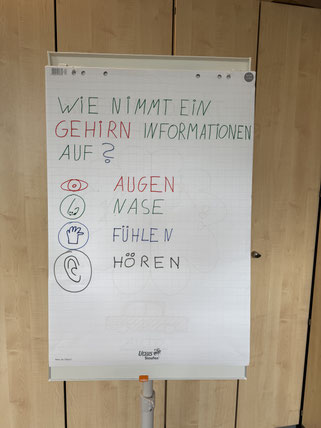 WIE NIMMT EIN
GEHIRN INFORMATIONEN
AUF ?
AUGEN
NASE
FÜHLEN
HÖREN